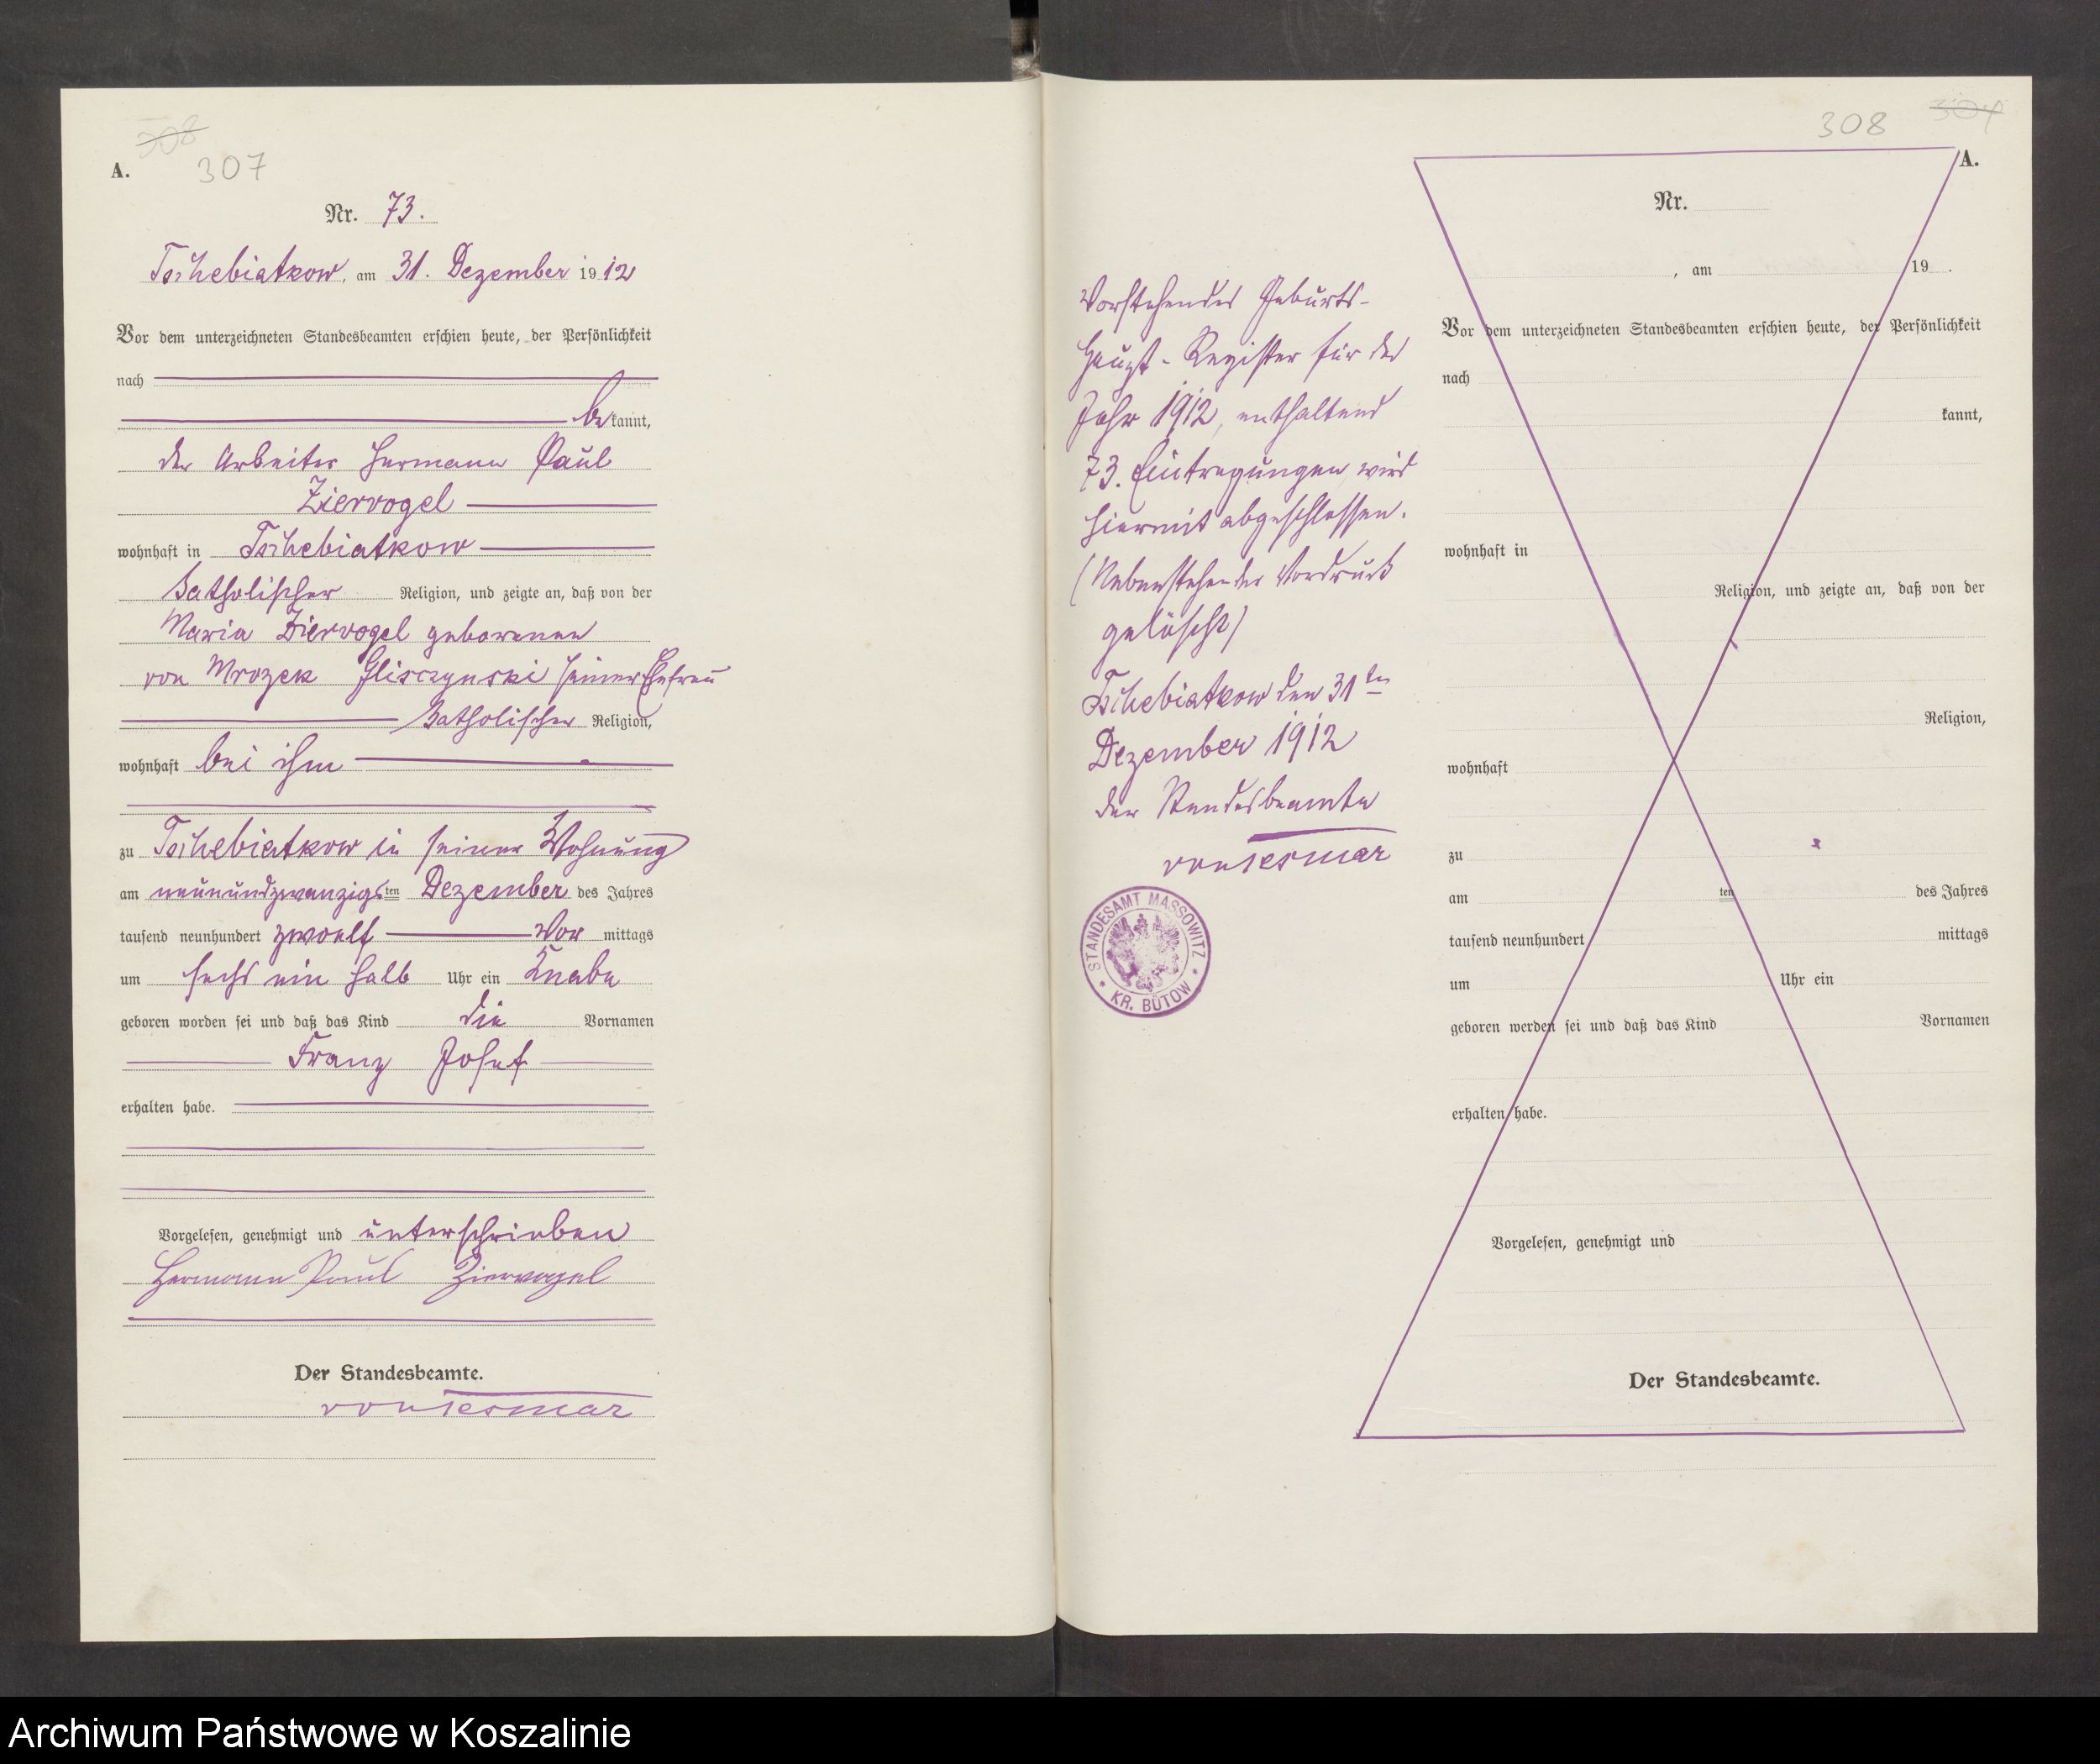 308
A. 307
Nr. 73.
Tschebiatkow, am 31. Dezember 1912
Vor dem unterzeichneten Standesbeamten erschien heute, der Persönlichkeit
nach
be kannt,
der Arbeiter Hermann Paul
Ziervogel
wohnhaft in Tschebiatkow
katholischer Religion, und zeigte an, daß von der
Maria Ziervogel geborenen
von Mrozek Glisczynski seiner Ehefrau
katholischer Religion,
wohnhaft bei ihm
zu Tschebiatkow in seiner Wohnung
am neunundzwanzigsten Dezember des Jahres
tausend neunhundert zwoelf Vor mittags
um sechs ein halb Uhr ein Knabe
geboren worden sei und daß das Kind die Vornamen
Franz Josef
erhalten habe.
Vorgelesen, genehmigt und unterschrieben
Hermann Paul Ziervogel
Der Standesbeamte.
von Tesmar
Vorstehendes Geburts-
Haupt-Register für das
Jahr 1912, enthaltend
73. Eintragungen wird
hiermit abgeschlossen.
(Nebenstehender Vordruck
gelöscht)
Tschebiatkow den 31ten
Dezember 1912
der Standesbeamte
von Tesmar
STANDESAMT MASSOWITZ
* KR. BÜTOW *
308 304
A.
Nr.
, am 19 .
Vor dem unterzeichneten Standesbeamten erschien heute, der Persönlichkeit
nach
kannt,
wohnhaft in
Religion, und zeigte an, daß von der
Religion,
wohnhaft
zu
am ten des Jahres
tausend neunhundert mittags
um Uhr ein
geboren werden sei und daß das Kind Vornamen
erhalten habe.
Vorgelesen, genehmigt und
Der Standesbeamte.
Archiwum Państwowe w Koszalinie